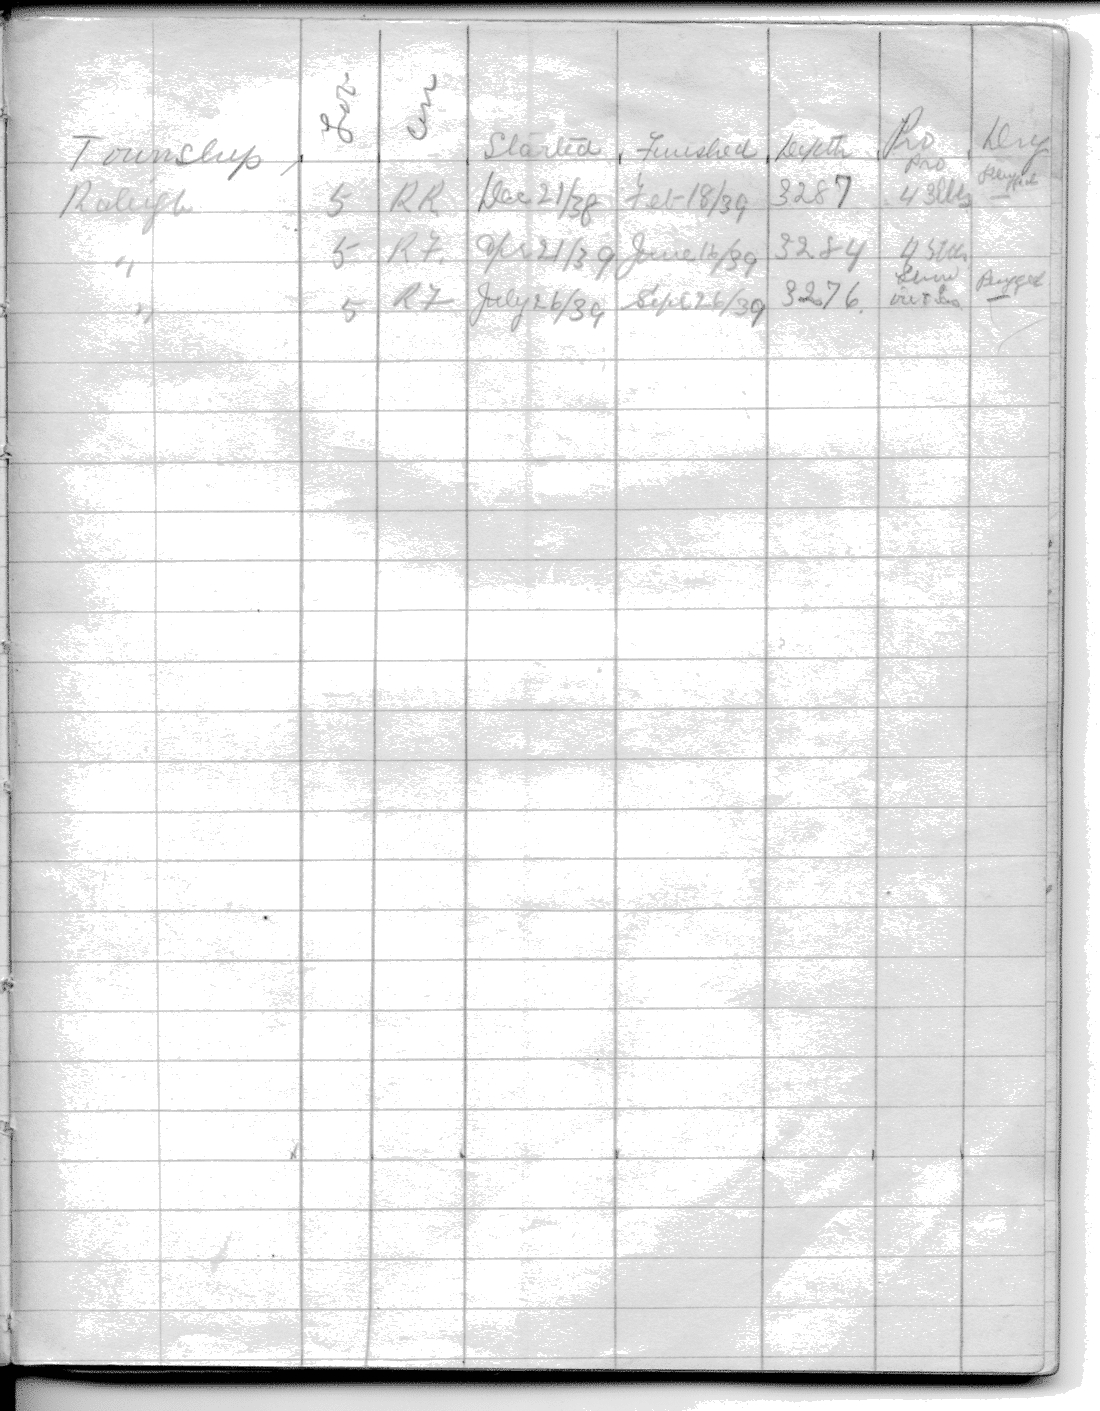 Township Lot Con Started Finished Depth Pro Dry
Raleigh 5 RR Dec 21/38 Feb 18/39 3287 Pro 43lbs
" 5 R7. Apr 21/39 June 16/39 3284
" 5 R7 July 26/39 Sept 26/39 3276.